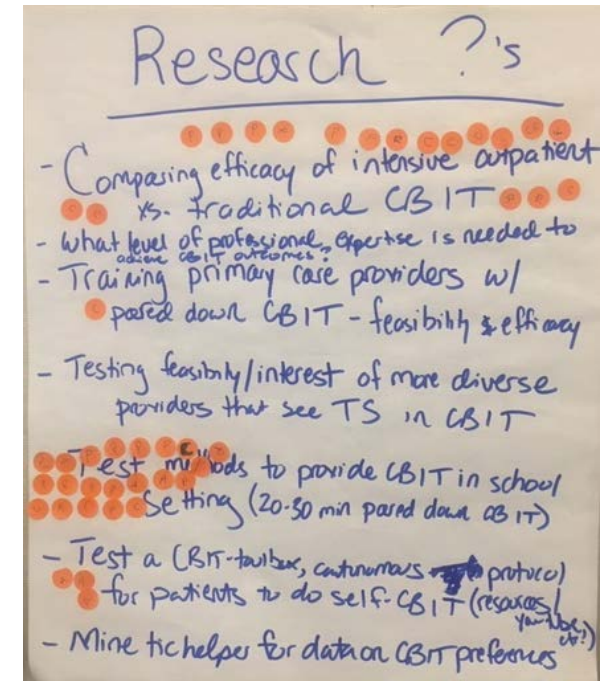 Research ?'s
- Comparing efficacy of intensive outpatient
vs. traditional CBIT
- What level of professional expertise is needed to
achieve CBIT outcomes?
- Training primary care providers w/
pared down CBIT - feasibility & efficacy
- Testing feasibility/interest of more diverse
providers that see TS in CBIT
- Test methods to provide CBIT in school
Setting (20-30 min pared down CBIT)
- Test a CBIT-toolbox, autonomous protocol
for patients to do self-CBIT (resources/
youtube
- Mine tichelper for data on CBIT preferences